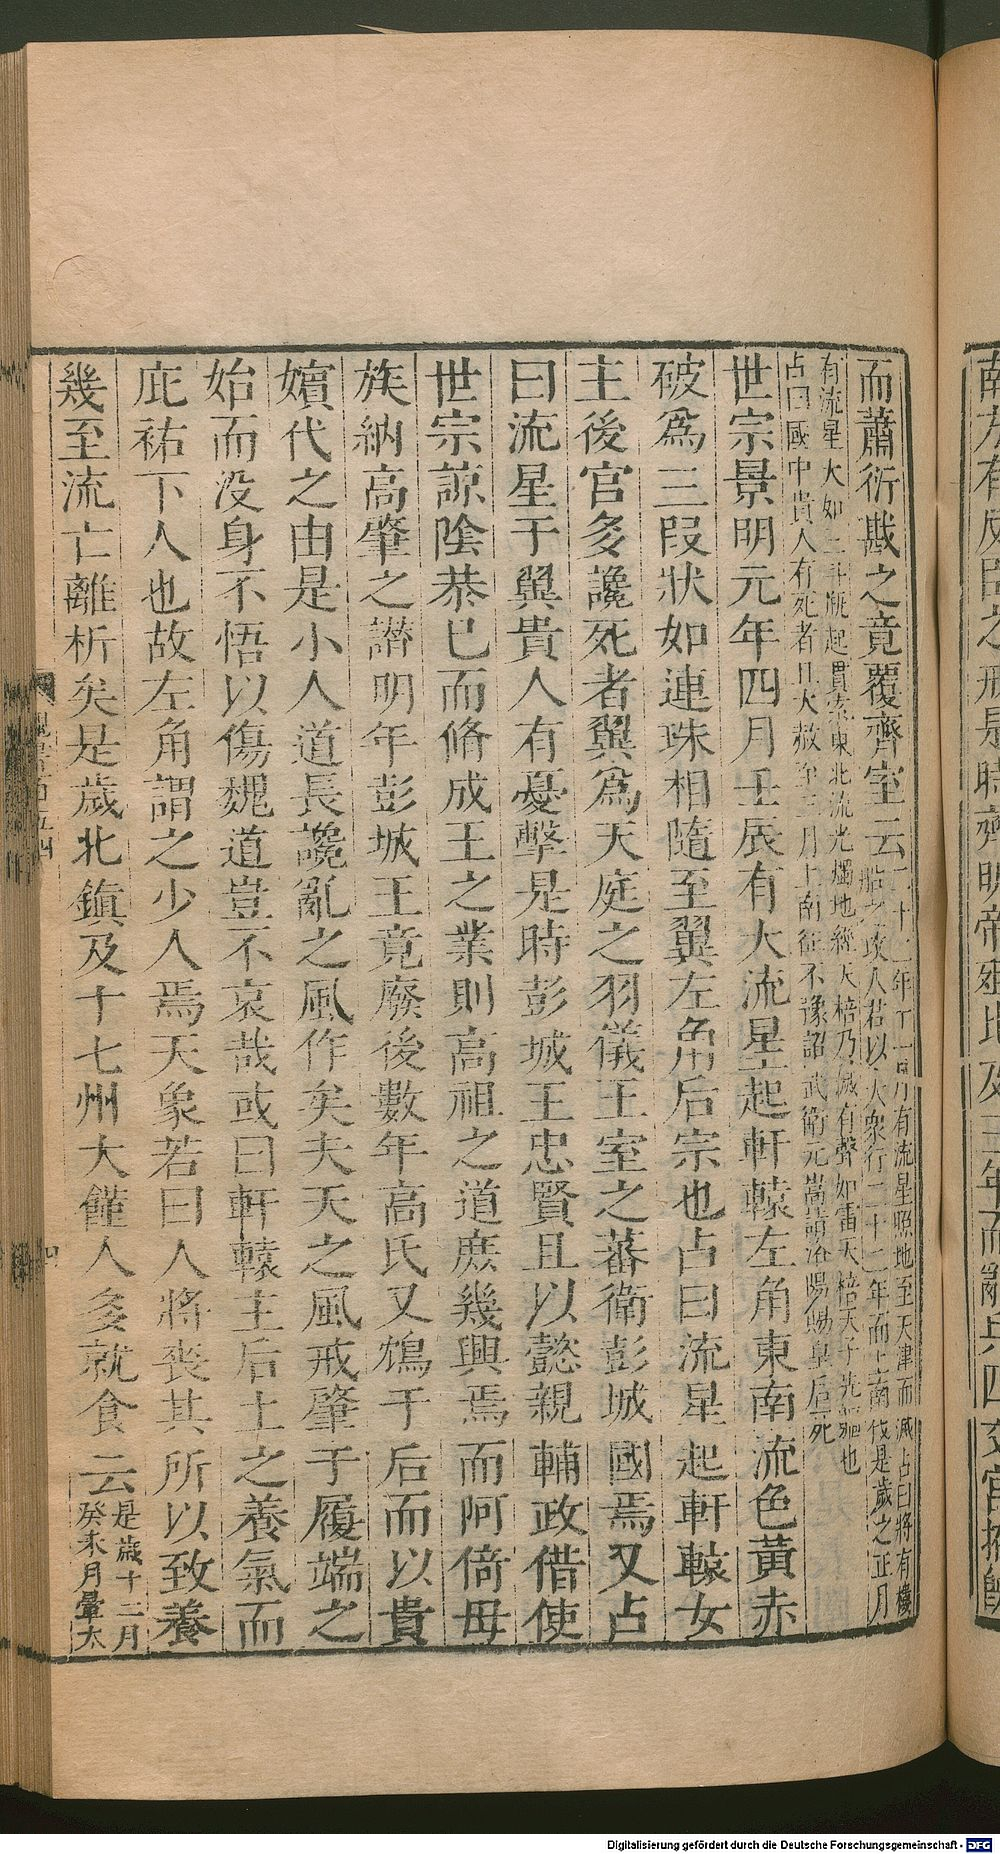 而蕭衍戡之竟覆齊室云二十一年十一月有流星照地至天津而滅占曰將有樓
船之攻人君以大衆行二十二年而上南伐是歲之正月
有流星大如三斗瓶起貫索東北流光燭地經天棓乃滅有聲如雷天棓天子先驅也
占曰國中貴人有死者且大赦至三月上南征不豫詔武衛元嵩詣洛陽賜皇后死
世宗景明元年四月壬辰有大流星起軒轅左角東南流色黃赤
破爲三段狀如連珠相隨至翼左角后宗也占曰流星起軒轅女
主後宮多讒死者翼爲天庭之羽儀王室之蕃衛彭城國焉又占
曰流星于翼貴人有憂擊是時彭城王忠賢且以懿親輔政借使
世宗諒陰恭己而脩成王之業則高祖之道庶幾興焉而阿倚母
族納高肇之譖明年彭城王竟廢後數年高氏又鴆于后而以貴
嬪代之由是小人道長讒亂之風作矣夫天之風戒肇于履端之
始而没身不悟以傷魏道豈不哀哉或曰軒轅主后土之養氣而
庇祐下人也故左角謂之少人焉天象若曰人將喪其所以致養
幾至流亡離析矣是歲北鎮及十七州大饉人多就食云是歲十二月
癸未月暈太
四
Digitalisierung gefördert durch die Deutsche Forschungsgemeinschaft - DFG